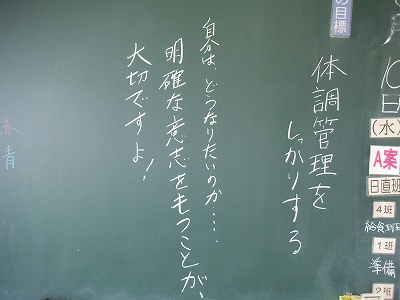 月
10
日
(水)
A案
日直班
4班
給食当番
1班
準備
2班
の目標
体調管理を
しっかりする
自分は、どうなりたいのか・・・、
明確な意志をもつことが、
大切ですよ！
赤
青